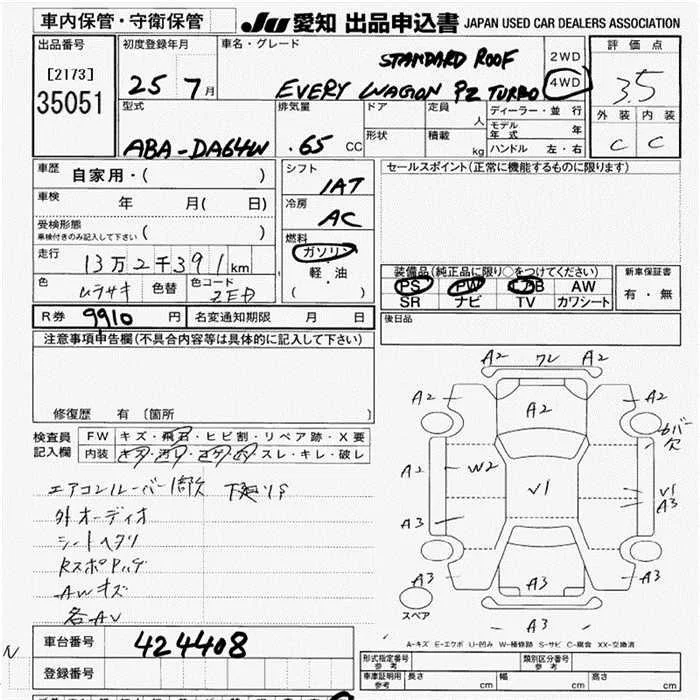 車内保管・守衛保管
JU 愛知 出品申込書 JAPAN USED CAR DEALERS ASSOCIATION
出品番号
[2173]
35051
初度登録年月
25 7月
車名・グレード
STANDARD ROOF
EVERY WAGON PZ TURBO
2WD
4WD
評価点
3.5
外装 内装
C C
型式
ABA-DA64W
排気量
.65 CC
ドア
定員
人
形状
積載
kg
ディーラー・並行
モデル年式 年
ハンドル 左・右
車歴
自家用・( )
車検
年 月( 日)
受検形態
車検付きのみ記入して下さい ( )
走行
13万2千391km
色
ムラサキ
色替
色コード
ZED
シフト
1AT
冷房
AC
燃料
ガソリン
軽・油
( )
セールスポイント(正常に機能するものに限ります)
装備品(純正品に限り○をつけてください)
PS PW エアB AW
SR ナビ TV カワシート
新車保証書
有・無
後日品
R券 9910 円
名変通知期限 月 日
注意事項申告欄(不具合内容等は具体的に記入して下さい)
修復歴 有 〔箇所 〕
検査員記入欄
FW キズ・飛石・ヒビ割・リペア跡・X要
内装 キズ・汚れ・コゲ・穴・スレ・キレ・破レ
エアコンルーバー1部欠 下廻りS
外オーディオ
シートヘタリ
AWキズ
各AU
A2 ワレ A2
A2 A2 A2
バー欠
A2 W2 V1 V1
A3 A3
A3 A3 A3
スペア
A3
A-キズ E-エクボ U-凹み W-補修跡 S-サビ C-腐食 XX-交換済
N
車台番号 424408
登録番号
形式指定番号 参考
類別区分番号 参考
車庫証明用 参考
長さ cm
幅 cm
高さ cm